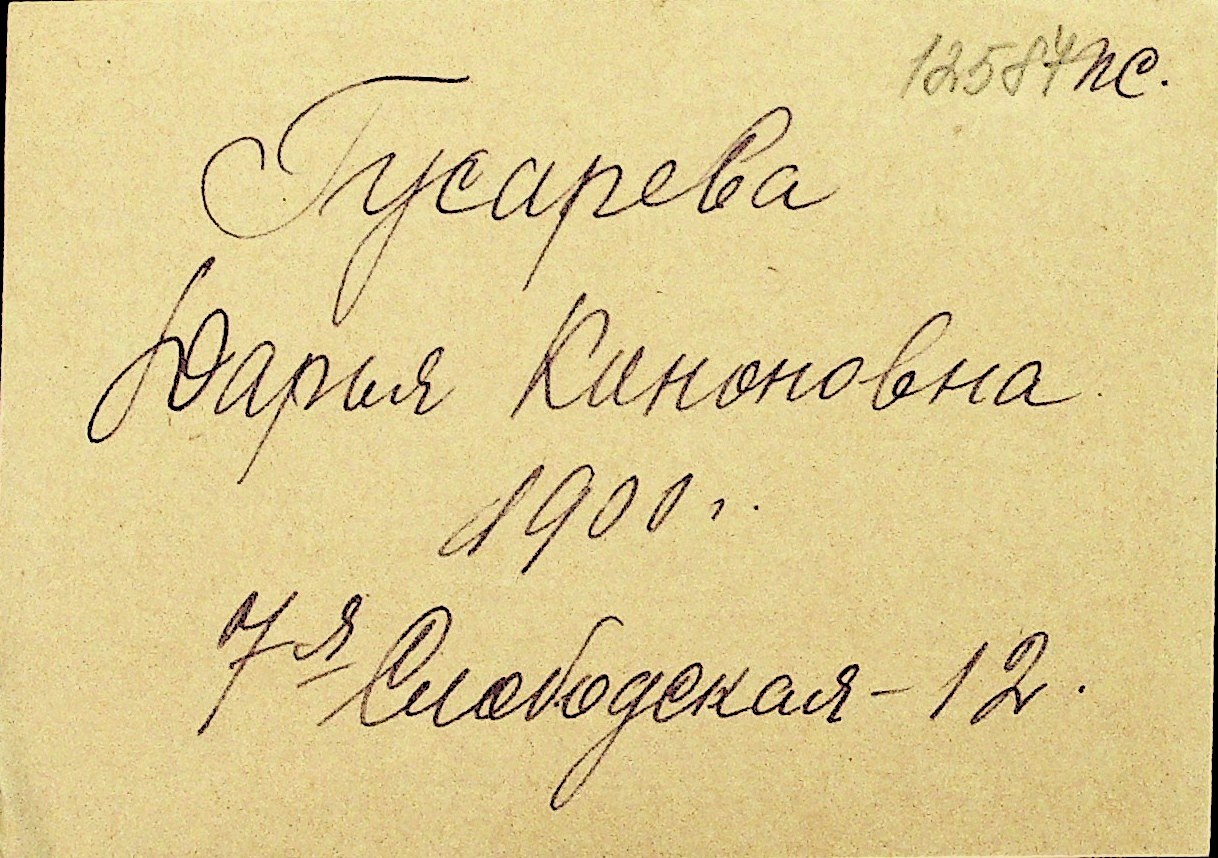 12587 пс.
Гусарева
Дарья Кононовна
1900 г.
7я Слободская - 12.